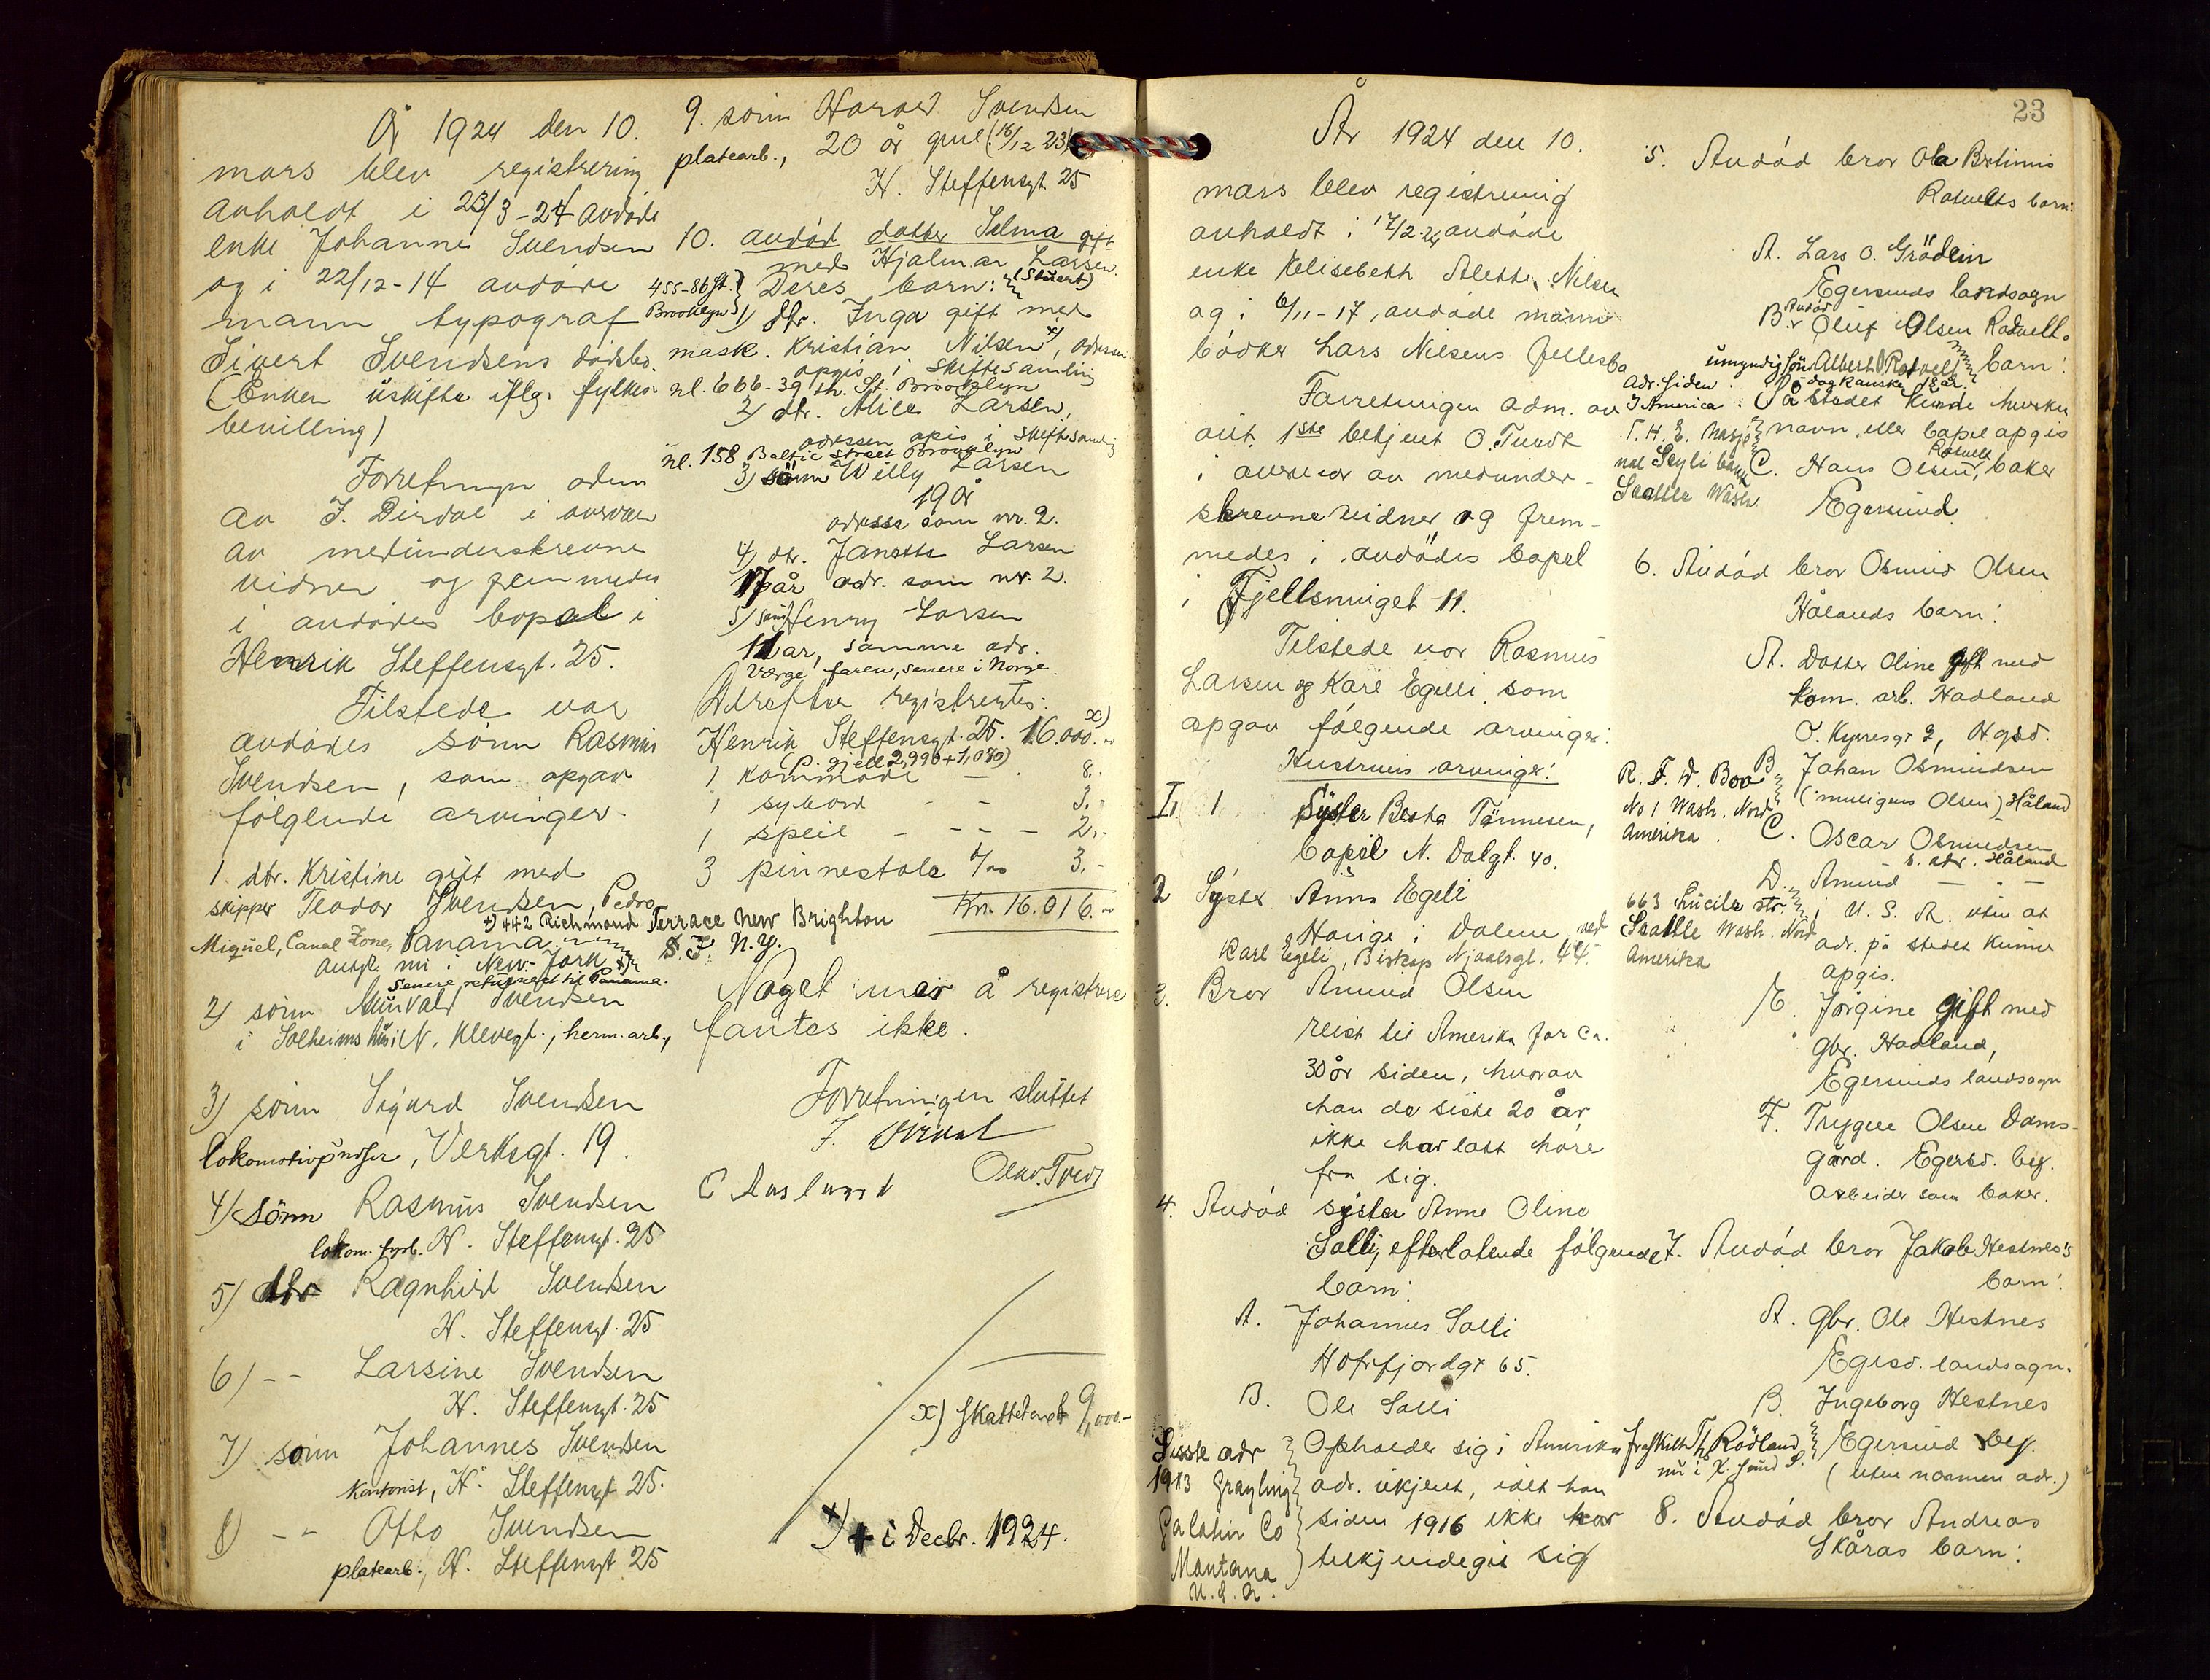 År 1924 den 10.
mars blev registrering
avholdt i 23/3-24 avdøde
enke Johanne Svendsen
og i 22/12-14 avdøde
mann typograf
Sivert Svendsens dødsbo.
(Enken uskifte iflg. fylkes
bevilling)
Forretningen adm.
av J. Dirdal i overvær
av medunderskrevne
vidner og fremmedes
i avdødes bopæl i
Henrik Steffensgt. 25.
Tilstede var
avdødes sønn Rasmus
Svendsen, som opgav
følgende arvinger.
1. dtr. Kristine gift med
skipper Teodor Svendsen, Pedro
+) 442 Richmond Terrace New Brighton
Miguel, Canal Zone, Panama.
S. I. N.Y.
nu i New-York +)
Senere returnert til Panama.
2) sønn Svendsen
i Solheims hus i N. Klevegt., herm. arb.,
3) sønn Sigurd Svendsen
lokomotivpusser, Verksgt. 19.
4) sønn Rasmus Svendsen
lokom. fyrb. H. Steffensgt. 25
5) dtr Ragnhild Svendsen
H. Steffensgt. 25
6) -- Larsine Svendsen
H. Steffensgt. 25
7) sønn Johannes Svendsen
Kontorist, H. Steffensgt 25.
8) -- Otto Svendsen
platearb., H. Steffensgt 25
9. sønn Harald Svendsen
platearb., 20 år gml (16/12 23)
H. Steffensgt. 25
10. avdød datter Selma gift
med Hjalmar Larsen.
(Stuert)
455-86 St. Brooklyn
Deres barn:
1) dtr. Inga gift med
mask. Kristian Nilsen x), adressen
opgis i skiftesamling
nl. 666-39 th. St. Brooklyn
2) dtr. Alice Larsen,
adressen opgis i skiftesamling
nl. 158 Baltic Street Brooklyn
3) sønn Willy Larsen
19 år
adresse som nr. 2.
4) dtr. Janette Larsen
17 år adr. som nr. 2.
5) sønn Henry Larsen
11 år, samme adr.
Værge faren, senere i Norge.
Derefter registrertes:
Henrik Steffensgt. 25. 16.000.- x)
(P. gjeld 2,990 + 1,080)
1 kommode - 8.-
1 sybord - - 3.-
1 speil - - - - 2.-
3 pinnestole 3.-
Kr. 16.016.-
Noget mer å registrere
fantes ikke.
Forretningen sluttet
J. Dirdal
C Auslund Olav. Tvedt
x) Skattetakst 9,000-
x) + i Decbr. 1924.
23
År 1924 den 10.
mars blev registrering
avholdt i 17/2-24 avdøde
enke Helisebeth Alette Nilsen
og i 6/11-17, avdøde mann
bødker Lars Nilsens fellesbo
Forretningen adm. av
aut. 1ste betjent O. Tvedt
i overvær av medunder-
skrevne vidner og frem-
medes i avdødes bopæl
i Fjellsmuget 11.
Tilstede var Rasmus
Larsen og Karl Egeli som
opgav følgende arvinger:
Hustruens arvinger:
I. 1 Syster Berta Tønnesen,
bopæl N. Dalgt. 40.
2 Syster Anna Egeli
Hauge i Dalene ved
Karl Egeli, Biskop Njaalsgt. 44.
3. Bror Amund Olsen
reist til Amerika for ca.
30 år siden, hvorav
han de siste 20 år
ikke har latt høre
fra sig.
4. Avdød syster Anne Oline
Salli, efterlatende følgende
barn:
A. Johannes Salli
Hafrfjordgt 65.
B. Ole Salli
Opholder sig i Amerika
adr. ukjent, idet han
siden 1916 ikke har
tilkjendegit sig
Sisste adr
1913 Grayling
Galatin Co
Montana
U.S.A.
5. Avdød bror Ola Bertinius
Rotvelts barn:
A. Lars O. Grødein
Egersunds landsogn
B. Avdød Oluf Olsen Rotvelts
umyndig søn Albert Rotvelt barn:
Adr. siden
I America
På stedet kunde hverken
navn eller bopæl opgis
Seattle Wash
C. Hans Olsen Rotvelt, baker
Egersund
6. Avdød bror Osmund Olsen
Hålands barn:
A. Datter Oline gift med
kom. arb. Hadland
O. Kyrresgt 2, Hgsd.
B. Johan Osmundsen
(muligens Olsen) Håland
R. F. D. Box
No 1 Wash. Nord
Amerika.
C. Oscar Osmundsen
s. adr. Håland
D. Amund - " -
i U. S. A. uten at
adr. på stedet kunne
opgis.
663 Lucile str.
Seattle Wash. Nord
Amerika
E. Jørgine gift med
gbr. Hadland,
Egersunds landsogn
F. Trygve Olsen Dams-
gård. Egersd. by.
arbeider som baker.
7. Avdød bror Jakob Hestnes's
barn:
A. gbr. Ole Hestnes
Egersd. landsogn.
B. Ingeborg Hestnes
fraskilt Th. Rødland
Egersund by.
(uten nærmere adr.)
8. Avdød bror Andreas
Skåras barn: